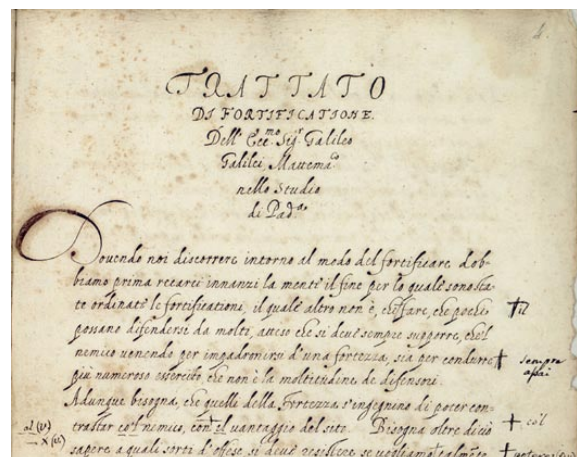 TRATTATO
DI FORTIFICATIONE.
Dell' Ecc.mo Sig.r Galileo
Galilei, Mattema.co
nello Studio
di Pad.a
Douendo noi discorrere intorno al modo del fortificare dob-
biamo prima recarci innanzi la mente il fine per lo quale sono sta-
te ordinate le fortificationi, il quale altro non è, che fare, che pochi
possano difendersi da molti, atteso che si deue sempre supporre, che'l
nemico uenendo per impadronirsi d'una fortezza, sia per condurre
sempre
assai
più numeroso essercito che non è la moltitudine de difensori.
Adunque bisogna, che quelli della fortezza s'ingegnino di poter con-
trastar co'l nemico, con il uantaggio del sito. Bisogna oltre di ciò
col
sapere a quali sorti d'offese si deue resistere se uogliamo